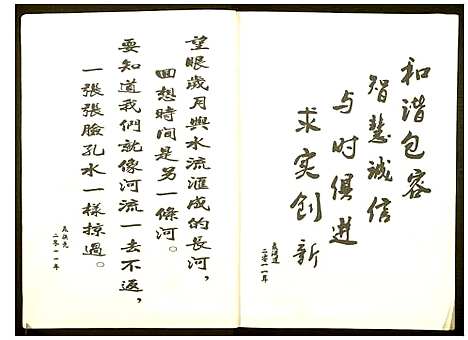 和谐包容
智慧诚信
与时俱进
求实创新
二零一一年
望眼歲月與水流滙成的長河，
回想時間是另一條河。
要知道我們就像河流一去不返，
一張張臉孔水一樣掠過。
二零一一年